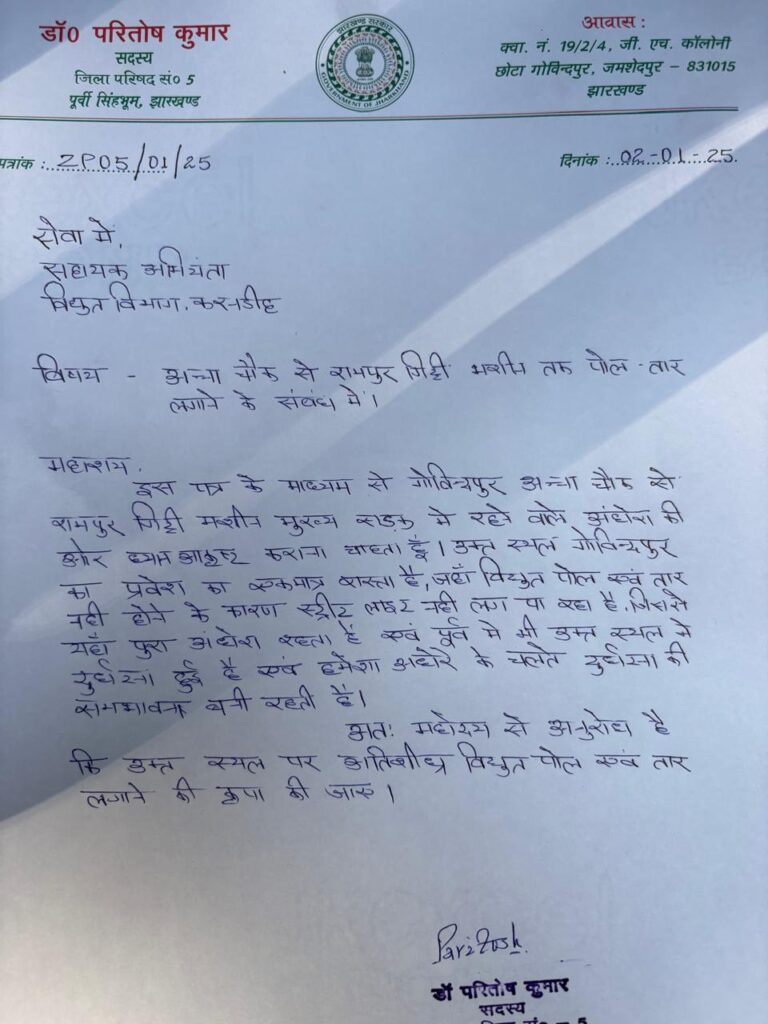 डॉ0 परितोष कुमार
सदस्य
जिला परिषद सं0 5
पूर्वी सिंहभूम, झारखण्ड
झारखण्ड सरकार
GOVERNMENT OF JHARKHAND
आवास :
क्वा. नं. 19/2/4, जी. एच. कॉलोनी
छोटा गोविन्दपुर, जमशेदपुर – 831015
झारखण्ड
पत्रांक : ZP05/01/25
दिनांक : 02-01-25.
सेवा में,
सहायक अभियंता
विद्युत विभाग, करनडीह
विषय - अन्ना चौक से रामपुर गिट्टी मशीन तक पोल - तार
लगाने के संबंध में।
महाशय,
इस पत्र के माध्यम से गोविन्दपुर अन्ना चौक से
रामपुर गिट्टी मशीन मुख्य सड़क में रहने वाले अंधेरा की
ओर ध्यान आकृष्ट कराना चाहता हूँ। उक्त स्थल गोविन्दपुर
का प्रवेश का एकमात्र रास्ता है, जहाँ विद्युत पोल एवं तार
नही होने के कारण स्ट्रीट लाइट नही लग पा रहा है, जिससे
यहाँ पुरा अंधेरा रहता है एवं पूर्व मे भी उक्त स्थल मे
दुर्घटना हुई है एवं हमेशा अंधेरे के चलते दुर्घटना की
समभावना बनी रहती है।
अतः महोदय से अनुरोध है
कि उक्त स्थल पर अतिशीघ्र विद्युत पोल एवं तार
लगाने की कृपा की जाए।
Paritosh
डॉ परितोष कुमार
सदस्य